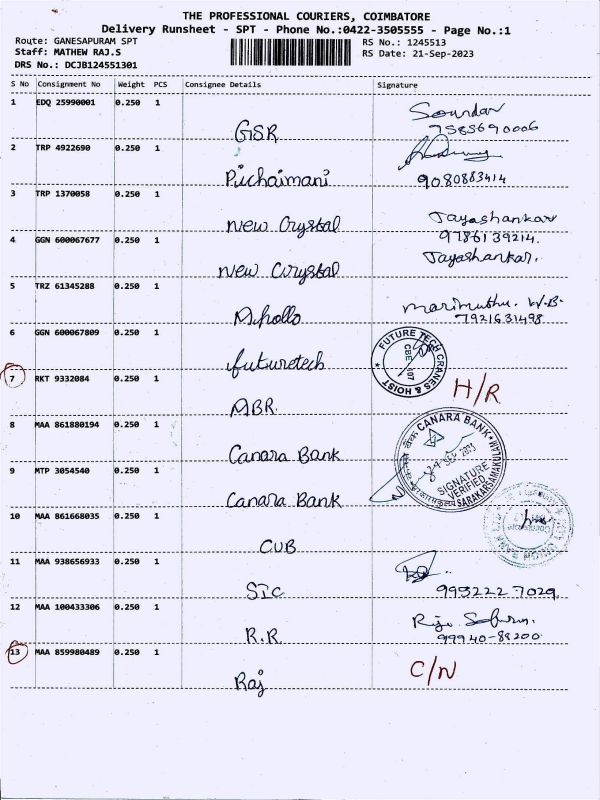 THE PROFESSIONAL COURIERS, COIMBATORE
Delivery Runsheet - SPT - Phone No.:0422-3505555 - Page No.:1
Route: GANESAPURAM SPT
RS No.: 1245513
Staff: MATHEW RAJ.S
RS Date: 21-Sep-2023
DRS No.: DCJB124551301
S No Consignment No Weight PCS Consignee Details Signature
1 EDQ 25990001 0.250 1
GSR
7583690006
2 TRP 4922690 0.250 1
Pichaimani
9080883414
3 TRP 1370058 0.250 1
New Crystal
Jayashankar
9786139214.
4 GGN 600067677 0.250 1
New Crystal
Jayashankar.
5 TRZ 61345288 0.250 1
Marimuthu.
7921631498
6 GGN 600067809 0.250 1
futuretech
FUTURE TECH CRANES & HOIST
CBE 107
7 RKT 9332084 0.250 1
ABR
H/R
8 MAA 861880194 0.250 1
Canara Bank
CANARA BANK
SEP 2023
SIGNATURE VERIFIED
9 MTP 3054540 0.250 1
Canara Bank
10 MAA 861668035 0.250 1
CUB
11 MAA 938656933 0.250 1
STC
993222 7029
12 MAA 100433306 0.250 1
R.R.
99940-88200
13 MAA 859980489 0.250 1
Raj
C/N